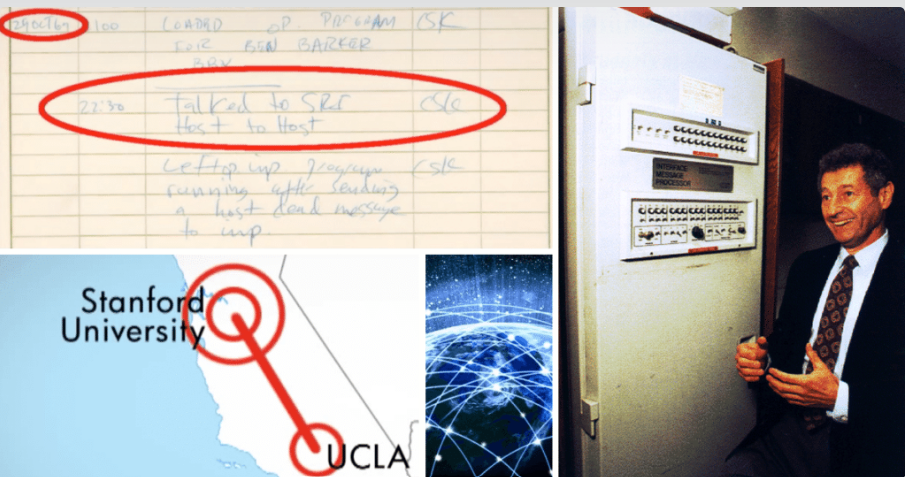 29OCT69 2100 LOADED OP. PROGRAM CSK
FOR BEN BARKER
BBV
22:30 Talked to SRI CSK
Host to Host
Left op imp program CSK
running after sending
a host dead message
to imp.
Stanford
University
UCLA
INTERFACE
MESSAGE
PROCESSOR